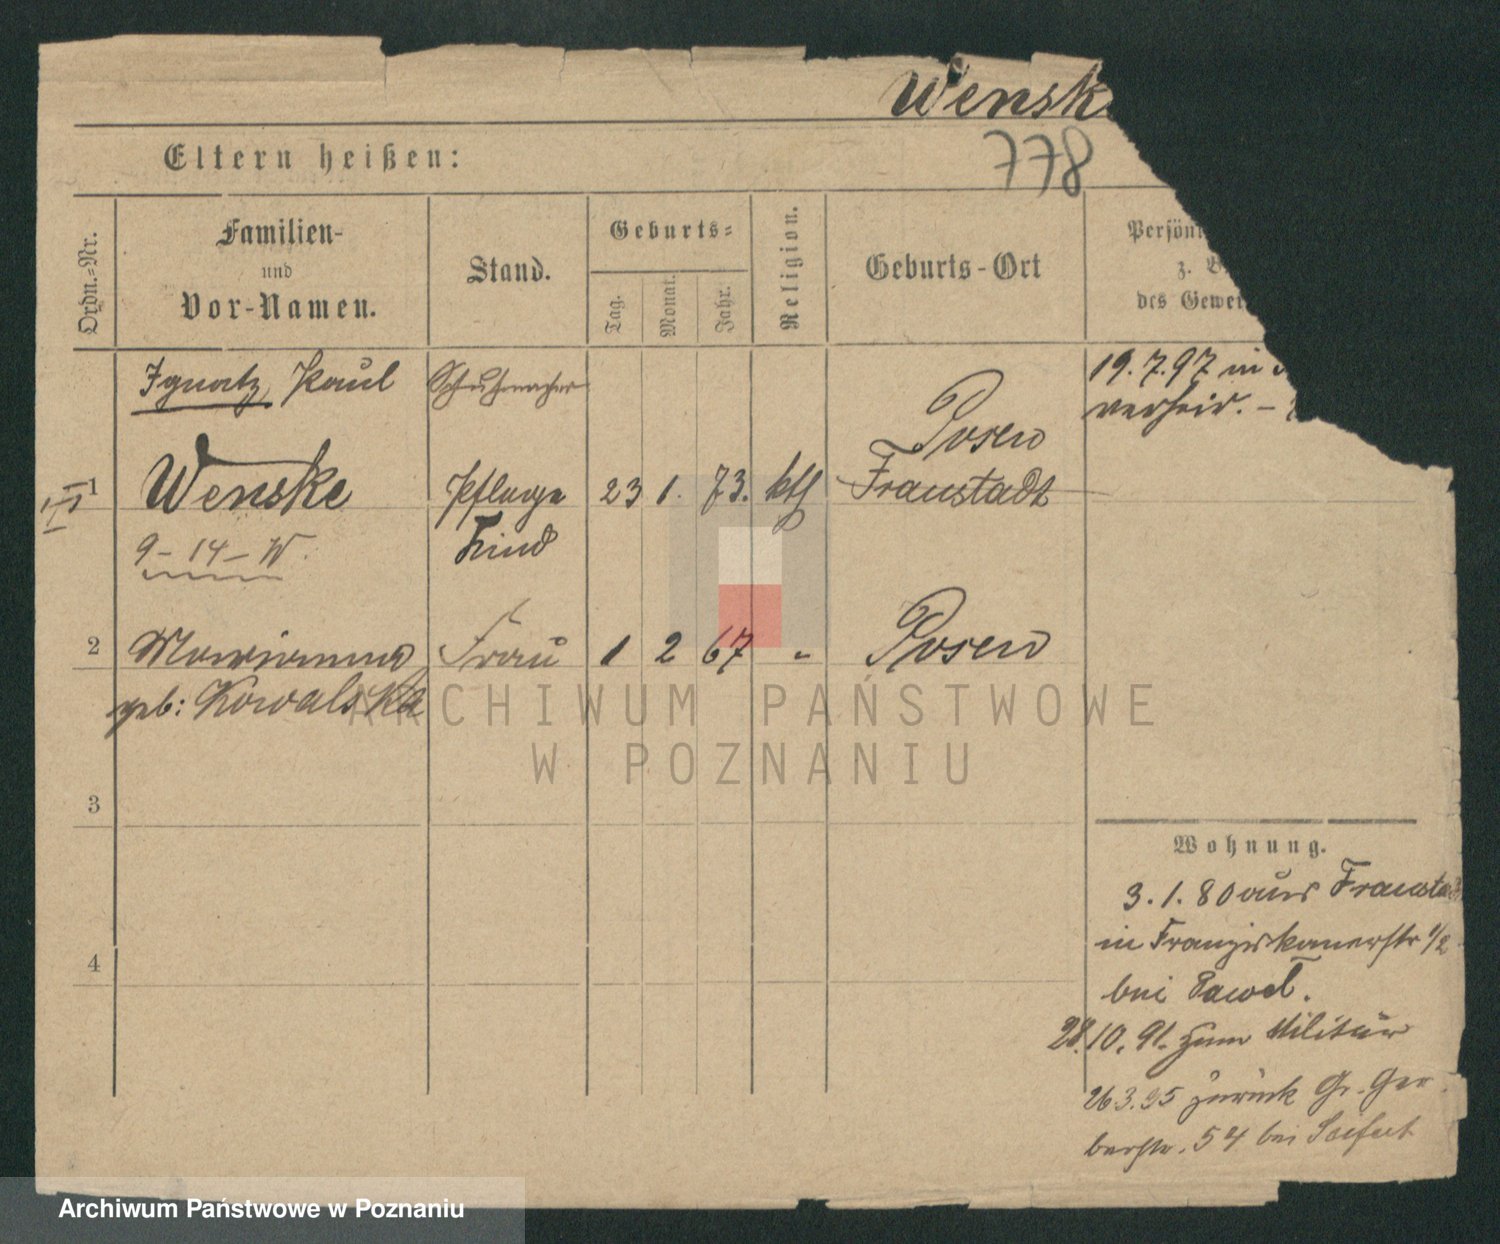 Wensk
778
Eltern heißen:
Ordn.-Nr.
Familien-
und
Vor-Namen.
Stand.
Geburts-
Tag.
Monat.
Jahr.
Religion.
Geburts-Ort
Persön
z. B
des Gewer
Ignatz, Paul
Schuhmacher
19.7.97 in
verheir. –
Posen
1
Wenske
Pflege
23 1. 73. kth
Fraustadt
9 – 14 – W.
Kind
2
Marianna
Frau
1 2 67 "
Posen
geb: Kowalska
ARCHIWUM PAŃSTWOWE
W POZNANIU
3
Wohnung.
3.1.80 aus Fraustadt
in Franziskanerstr 1/2
bei Pawel.
4
28.10.91. zum Militär
26 3.95 zurück Gr. Ger
berstr. 54 bei Seifert
Archiwum Państwowe w Poznaniu